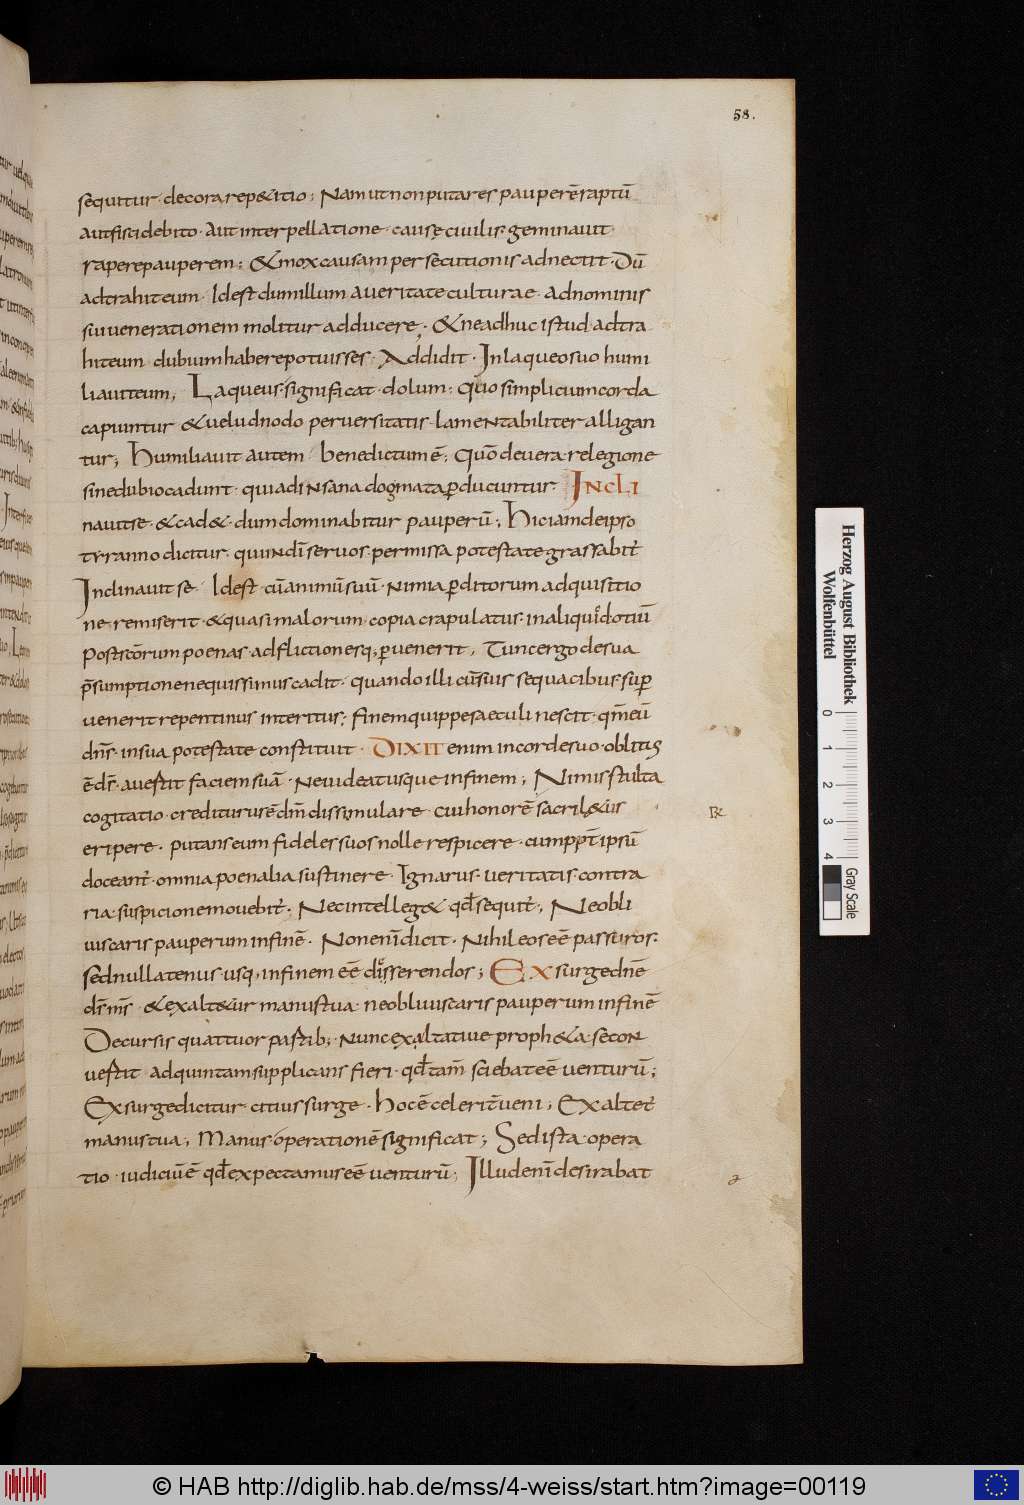 58.
sequitur · decora rep&itio ; Nam ut non putares pauperē raptū
aut fisci debito · aut interpellatione · causę ciuilis · geminauit
rapere pauperem ; & mox causam persecutionis adnectit · Dū
adtrahit eum · Id est dum illum a ueritate culturae · ad nominis
sui uenerationem molitur adducere · & ne adhuc istud adtra
hit eum dubium habere potuisses · Addidit · In laqueo suo humi
liauit eum ; Laqueus · significat · dolum ; Quo simplicium corda
capiuntur & uelud nodo peruersitatis · lamentabiliter alligan
tur ; Humiliauit autem benedictum ē ; Quō de uera relegione
sine dubio cadunt · qui ad insana dogmata ꝑducuntur · INCLI
nauit se · & cad& · dum dominabitur pauperū ; Hic iam de ipso
tyranno dicitur · qui in dī seruos · permissa potestate grassabit̄
Inclinauit se · Id est · cū animū suū · nimia ꝑditorum adquisitio
ne · remiserit · & quasi malorum · copia crapulatus · in aliquid otiū
Post iscōrum poenas · adflictionesq; ꝑuenerit , Tunc ergo de sua
p̄sumptione nequissimus cadit · quando illi cū suis sequacibus · suꝑ
uenerit repentinus interitus ; finem quippe saeculi nescit · qm̄ eū
dn̄s · in sua potestate constituit · DIXIT enim in corde suo · oblitus
ē dr̄ · auertit faciem suā · Ne uideat usque in finem ; Nimis stulta
cogitatio · crediturus ē dm̄ dissimulare · cui honorē sacril&is
eripere · putans eum fideles suos nolle respicere · cum ppt̄ ipsū
doceant̄ · omnia poenalia sustinere · Ignarus · ueritatis · contra
R
ria suspicione mouebit̄ · Nec intelleg& qd̄ sequit̄ ; Ne obli
uiscaris pauperum in finē · Non enī dicit · Nihil eos eē passuros ·
sed nullatenus usq; in finem eē disserendos ; Exsurge dnē
ds̄ ms̄ · & exalt&ur manus tua · ne obliuiscaris pauperum in finē
Decursis quattuor partib; · nunc exaltatiue proph&a · se con
uertit · ad quintam supplicans fieri · qd̄ tam̄ sciebat eē uenturū ;
Exsurge dicitur · citius surge · Hoc ē celerit̄ ueni ; Exaltet̄
manus tua ; Manus operationē significat ; Sed ista · opera
tio · iudiciū ē qd̄ expectamus eē uenturū ; Illud enī desirabat
Herzog August Bibliothek
Wolfenbüttel
0 1 2 3 4
Gray Scale
© HAB http://diglib.hab.de/mss/4-weiss/start.htm?image=00119